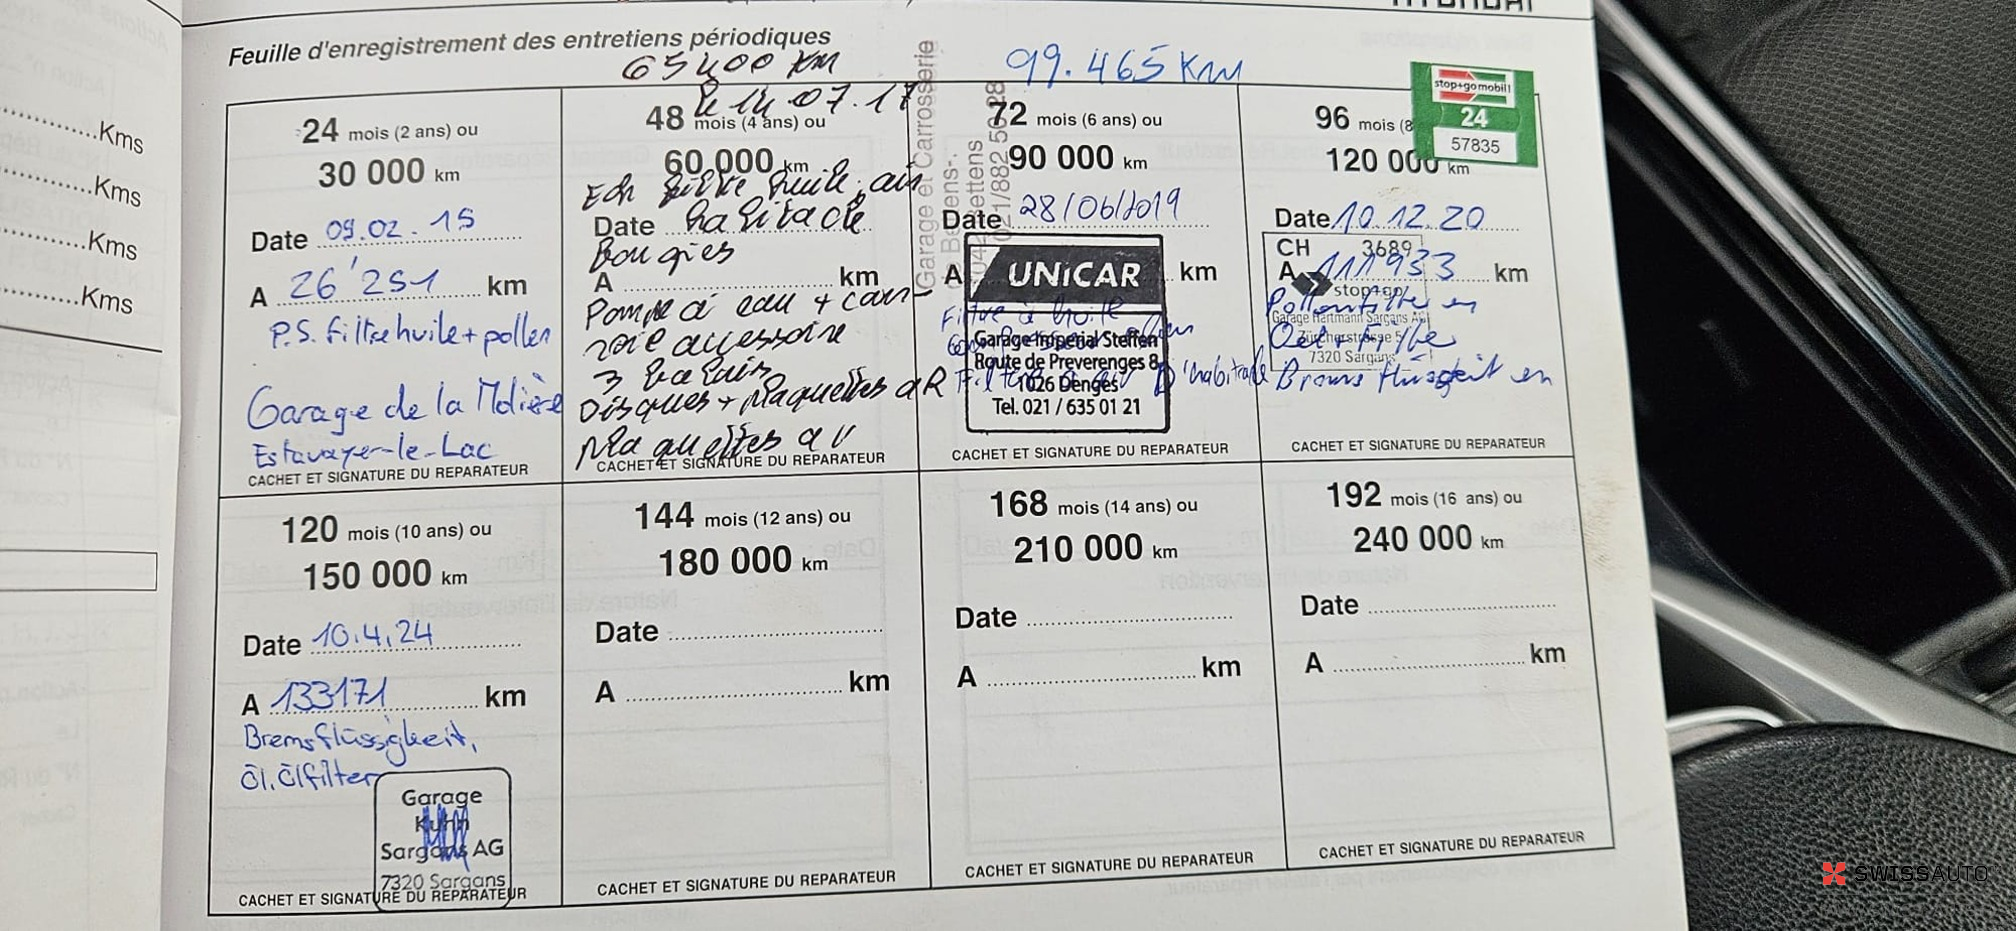 HYUNDAI
Feuille d'enregistrement des entretiens périodiques
Kms
Kms
Kms
Kms
24 mois (2 ans) ou
30 000 km
Date 09.02.15
A 26'251 km
P.S. filtre huile + pollen
Garage de la Molière
Estavayer-le-Lac
CACHET ET SIGNATURE DU REPARATEUR
65400 KM
le 14.07.17
48 mois (4 ans) ou
60 000 km
Ech filtre huile, air
Date habitacle
Bougies
A km
Pompe à eau + courroie accessoire
3 balais
Disques + plaquettes aR
Plaquettes av
CACHET ET SIGNATURE DU REPARATEUR
Garage et Carrosserie
Bettens
021/882 50 28
99.465 KM
72 mois (6 ans) ou
90 000 km
Date 28/06/2019
A km
UNiCAR
Filtre à huile
Garage Imperial Steffen
Route de Preverenges 8
1026 Denges
Tel. 021 / 635 01 21
D'habitacle
CACHET ET SIGNATURE DU REPARATEUR
stop+go mobil!
24
57835
96 mois (8
120 000 km
Date 10.12.20
CH 3689
A 111'933 km
stop+go
Pollenfilter en
Garage Hartmann Sargans AG
Oel + Filter
Zürcherstrasse 5
7320 Sargans
Bremsflüssigkeit en
CACHET ET SIGNATURE DU REPARATEUR
120 mois (10 ans) ou
150 000 km
Date 10.4.24
A 133171 km
Bremsflüssigkeit,
Öl, Ölfilter
Garage
Kuhn
Sargans AG
7320 Sargans
CACHET ET SIGNATURE DU REPARATEUR
144 mois (12 ans) ou
180 000 km
Date
A km
CACHET ET SIGNATURE DU REPARATEUR
168 mois (14 ans) ou
210 000 km
Date
A km
CACHET ET SIGNATURE DU REPARATEUR
192 mois (16 ans) ou
240 000 km
Date
A km
CACHET ET SIGNATURE DU REPARATEUR
SWISSAUTO